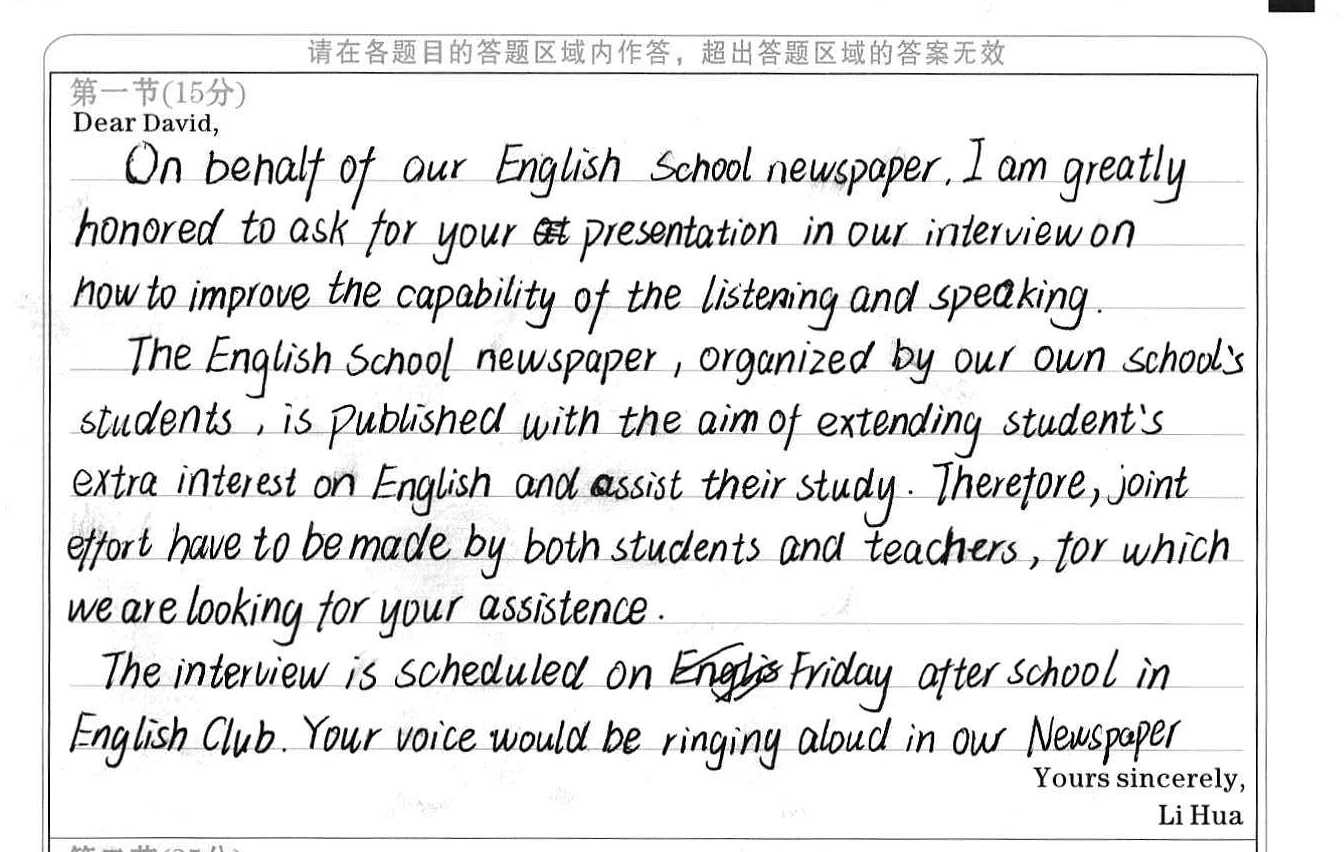 请在各题目的答题区域内作答，超出答题区域的答案无效
第一节(15分)
Dear David,
On behalf of our English School newspaper, I am greatly
honored to ask for your presentation in our interview on
how to improve the capability of the listening and speaking.
The English School newspaper, organized by our own school's
students, is published with the aim of extending student's
extra interest on English and assist their study. Therefore, joint
effort have to be made by both students and teachers, for which
we are looking for your assistence.
The interview is scheduled on Englis Friday after school in
English Club. Your voice would be ringing aloud in our Newspaper
Yours sincerely,
Li Hua